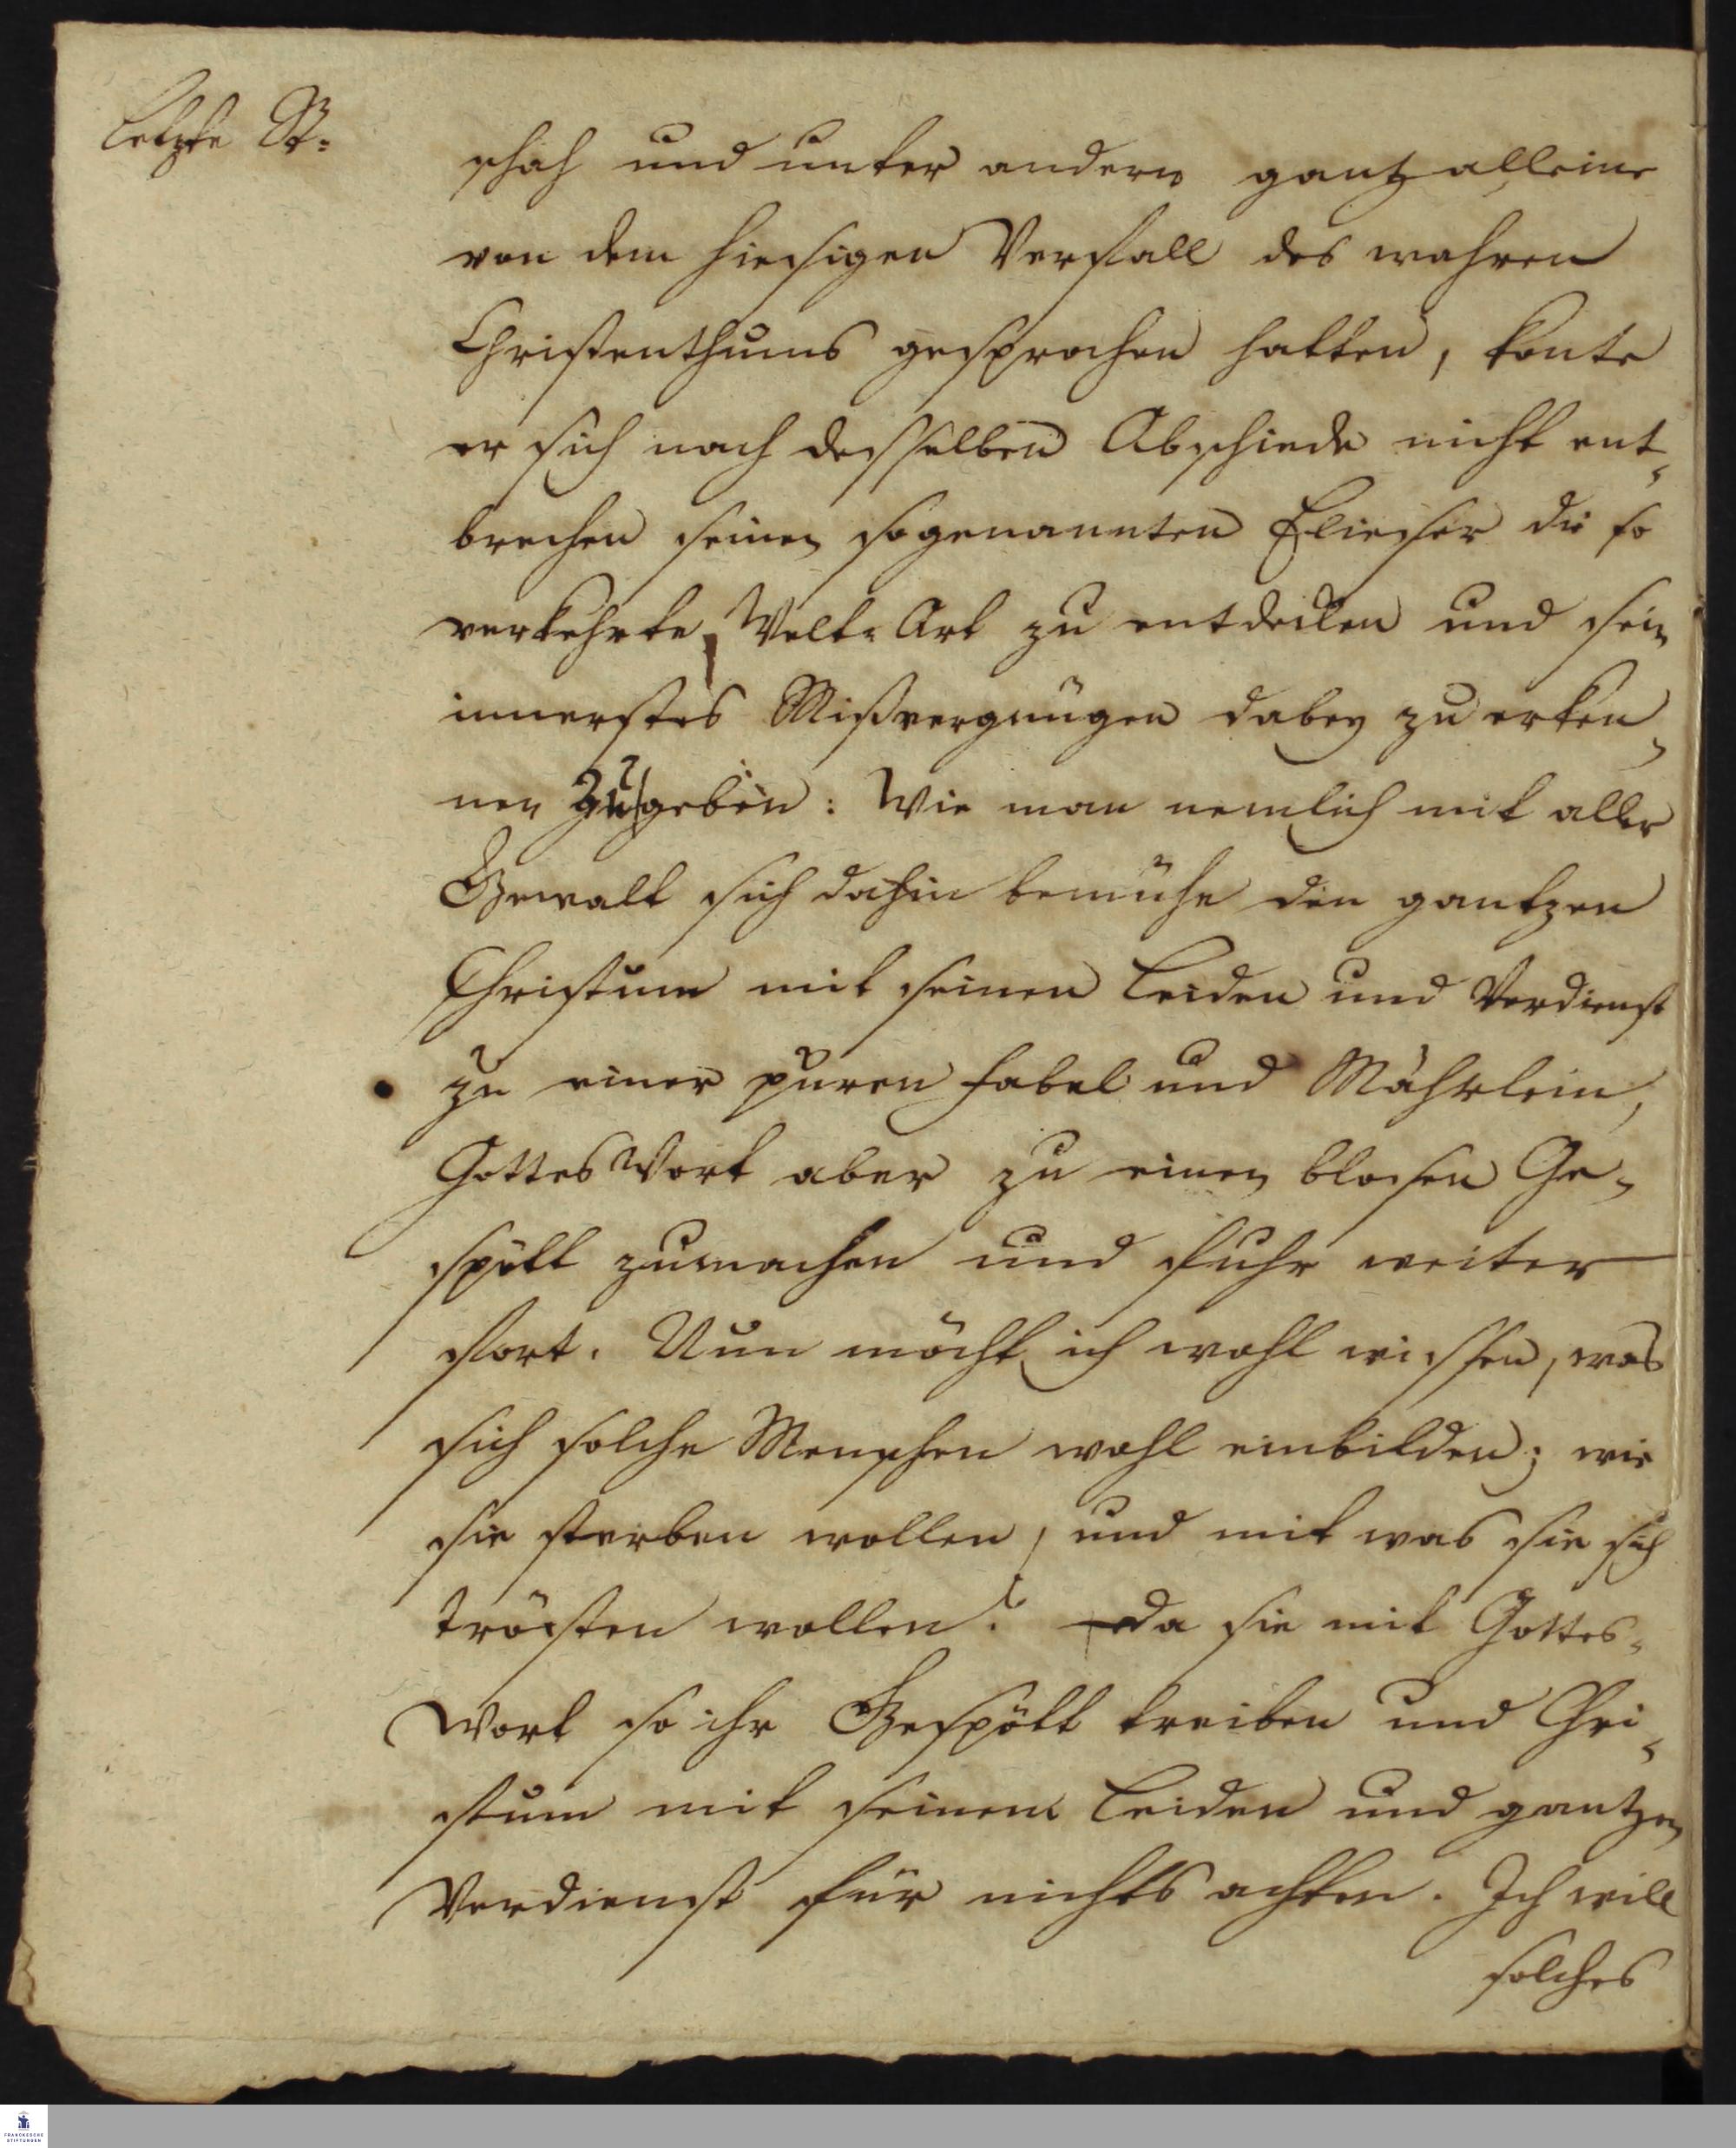 letzte St:
schah und unter andern gantz alleine
von dem hiesigen Verfall des wahren
Christenthums gesprochen hatten, konte
er sich nach desselben Abschiede nicht ent¬
brechen seinen sogenannten Elieser die so
verkehrte Welt-Art zu entdecken und sein
innerstes Mißvergnügen dabey zu erken¬
nen zu geben: Wie man nemlich mit aller
Gewalt sich dahin bemühe den gantzen
Christum mit seinen Leiden und Verdienst
zu einer puren Fabel und Mährlein,
Gottes Wort aber zu einen blosen Ge¬
spött zumachen und fuhr weiter
fort. Nun möcht ich wohl wissen, was
sich solche Menschen wohl einbilden; wie
sie sterben wollen, und mit was sie sich
trösten wollen? da sie mit Gottes¬
Wort so ihr Gespött treiben und Chri¬
stum mit seinem Leiden und gantzen
Verdienst für nichts achten. Ich will
solches
FRANCKESCHE
STIFTUNGEN